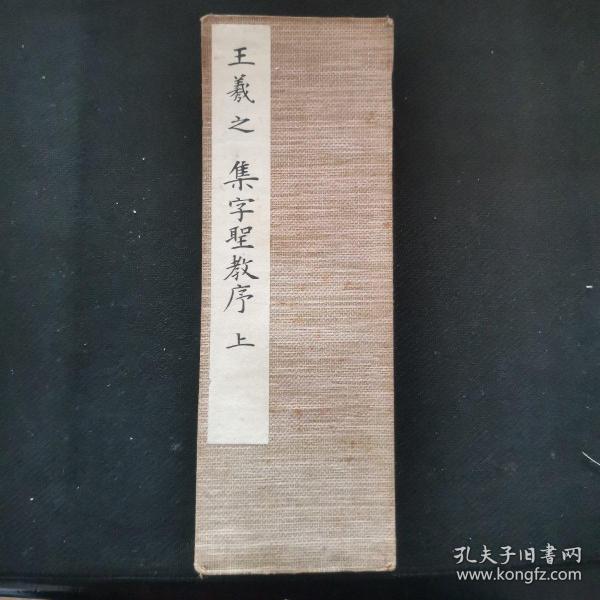 王羲之 集字聖教序 上
孔夫子旧書网
www.kongfz.com